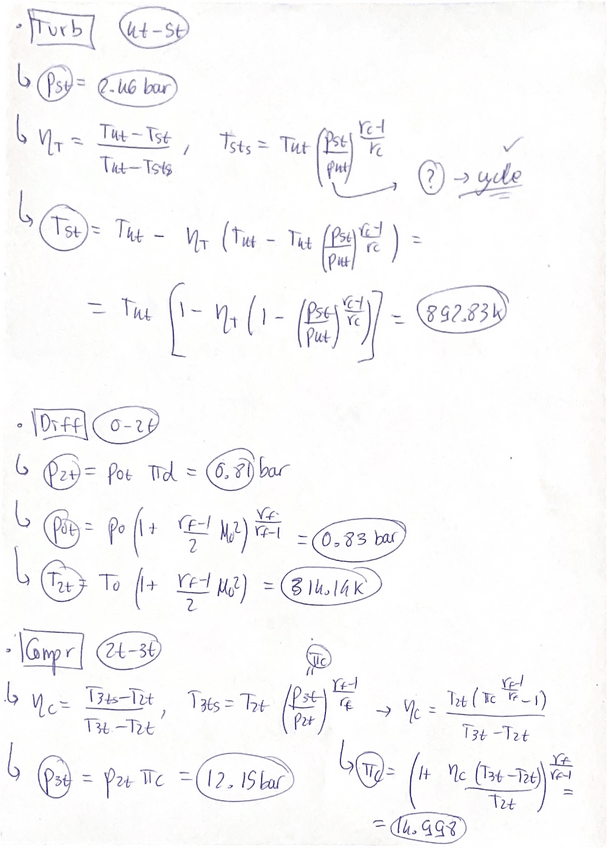 · Turb 4t-5t
↳ P5t = 2.46 bar
↳ ηT = (T4t - T5t) / (T4t - T5ts), T5ts = T4t (P5t/P4t)^((γc-1)/γc) → ? → cycle ✓
↳ T5t = T4t - ηT (T4t - T4t (P5t/P4t)^((γc-1)/γc)) =
= T4t [1 - ηT (1 - (P5t/P4t)^((γc-1)/γc))] = 892.83K
· Diff 0-2t
↳ P2t = P0t πd = 0.81 bar
↳ P0t = P0 (1 + (γf-1)/2 M0²)^(γf/(γf-1)) = 0.83 bar
↳ T2t = T0 (1 + (γf-1)/2 M0²) = 314.14K
· Compr 2t-3t
↳ ηc = (T3ts - T2t) / (T3t - T2t), T3ts = T2t (P3t/P2t)^((γf-1)/γf) → ηc = T2t (πc^((γf-1)/γf) - 1) / (T3t - T2t)
πc
"
↳ P3t = P2t πc = 12.15 bar
↳ πc = (1 + ηc (T3t - T2t) / T2t)^(γf/(γf-1)) =
= 14.998